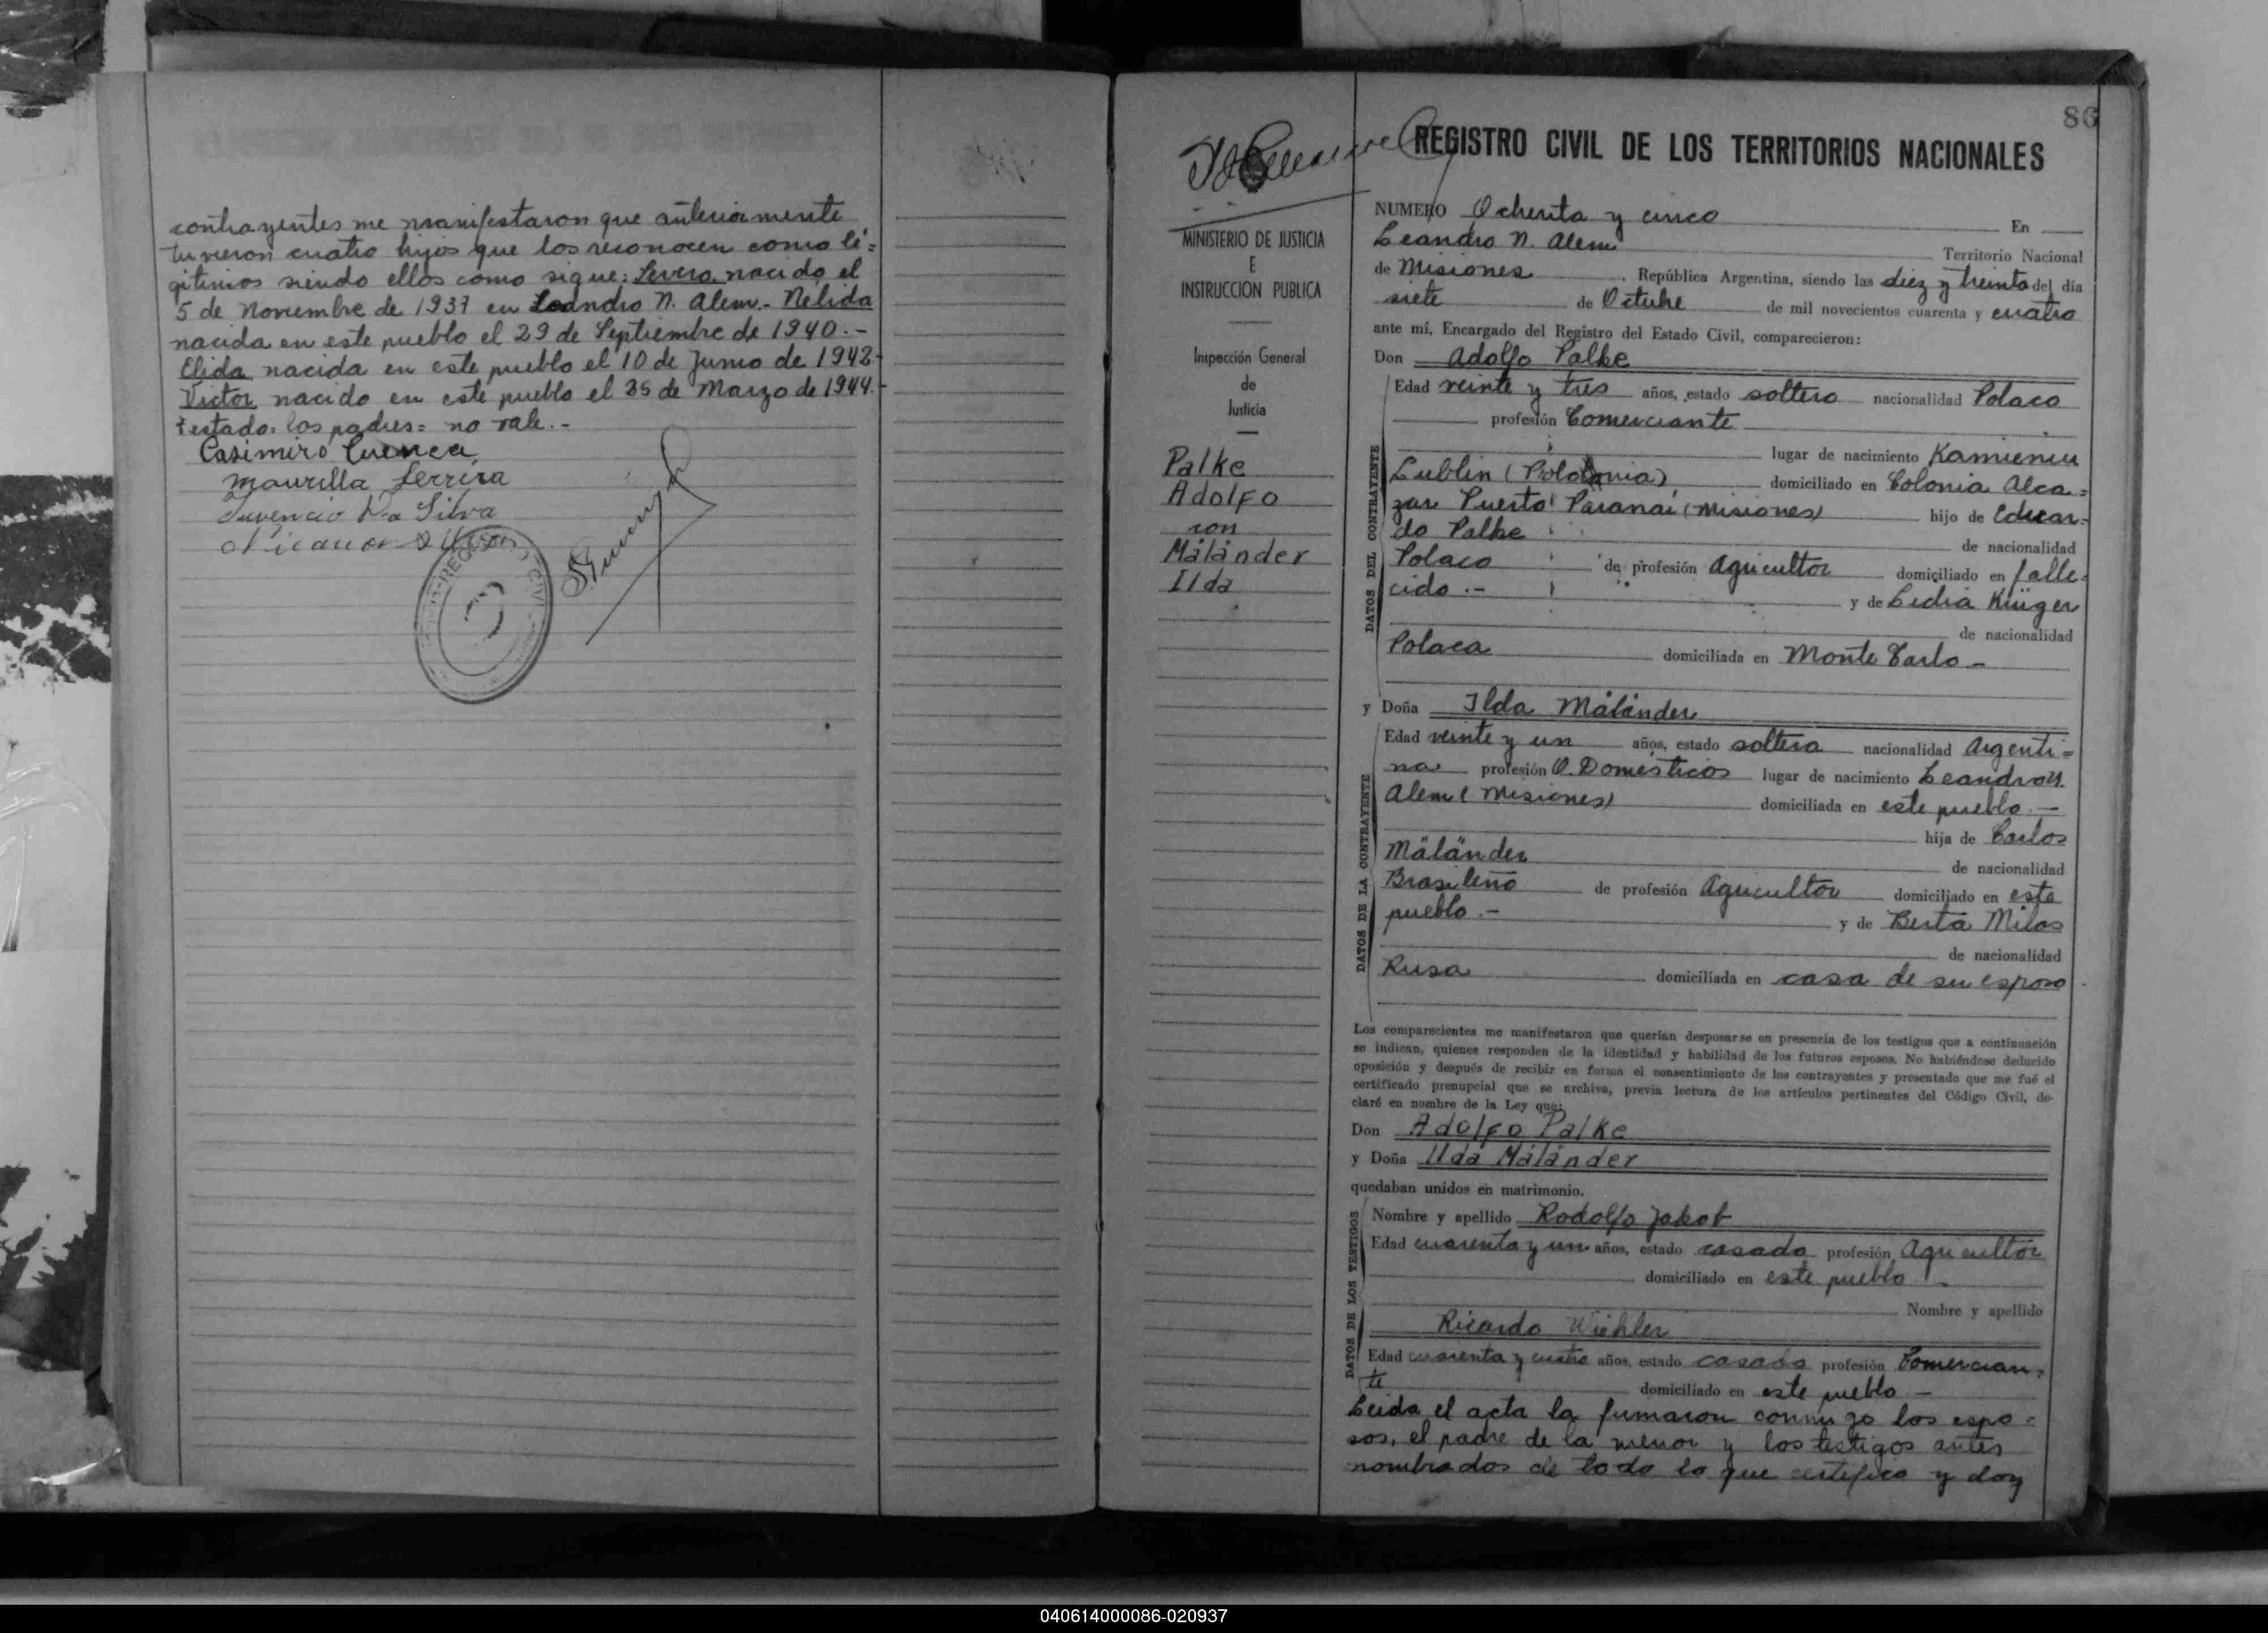 contrayentes me manifestaron que anteriormente
tuvieron cuatro hijos que los reconocen como le=
gitimos siendo ellos como sigue: Severo nacido el
5 de Noviembre de 1937 en Leandro N. Alem.- Nelida
nacida en este pueblo el 29 de Septiembre de 1940.-
Elida nacida en este pueblo el 10 de Junio de 1942-
Victor nacido en este pueblo el 25 de Marzo de 1944.-
Testado: los padres= no vale.-
Casimiro Cuenca
Maurilla Ferrira
Juvencio Da Silva
86
REGISTRO CIVIL DE LOS TERRITORIOS NACIONALES
MINISTERIO DE JUSTICIA
E
INSTRUCCION PUBLICA
Inspección General
de
Justicia
Palke
Adolfo
con
Mäländer
Ilda
NUMERO Ochenta y cinco En
Leandro N. Alem Territorio Nacional
de Misiones, República Argentina, siendo las diez y treinta del día
siete de Octubre de mil novecientos cuarenta y cuatro
ante mí, Encargado del Registro del Estado Civil, comparecieron:
Don Adolfo Palke
DATOS DEL CONTRAYENTE
Edad veinte y tres años, estado soltero nacionalidad Polaco
profesión Comerciante
lugar de nacimiento Kamieniu
Lublin (Polonia) domiciliado en Colonia Alca=
zar Puerto Paranai (Misiones) hijo de Eduar=
do Palke de nacionalidad
Polaco de profesión Agricultor domiciliado en falle=
cido.- y de Lidia Krüger
de nacionalidad
Polaca domiciliada en Monte Carlo-
y Doña Ilda Mäländer
DATOS DE LA CONTRAYENTE
Edad veinte y un años, estado soltera nacionalidad Argenti=
na profesión Q. Domésticos lugar de nacimiento Leandro N.
Alem (Misiones) domiciliada en este pueblo.-
hija de Carlos
Mäländer de nacionalidad
Brasileño de profesión Agricultor domiciliado en este
pueblo.- y de Berta Milas
de nacionalidad
Rusa domiciliada en casa de su esposo
Los comparecientes me manifestaron que querían desposarse en presencia de los testigos que a continuación
se indican, quienes responden de la identidad y habilidad de los futuros esposos. No habiéndose deducido
oposición y después de recibir en forma el consentimiento de los contrayentes y presentado que me fué el
certificado prenupcial que se archiva, previa lectura de los artículos pertinentes del Código Civil, de-
claré en nombre de la Ley que:
Don Adolfo Palke
y Doña Ilda Mäländer
quedaban unidos en matrimonio.
DATOS DE LOS TESTIGOS
Nombre y apellido Rodolfo Jakob
Edad cuarenta y un años, estado casado profesión Agricultor
domiciliado en este pueblo.-
Nombre y apellido
Ricardo Wiehler
Edad cuarenta y cuatro años, estado casado profesión Comercian=
te domiciliado en este pueblo-
Leida el acta la firmaron conmigo los espo=
sos, el padre de la menor y los testigos antes
nombrados de todo lo que certifico y doy
040614000086-020937